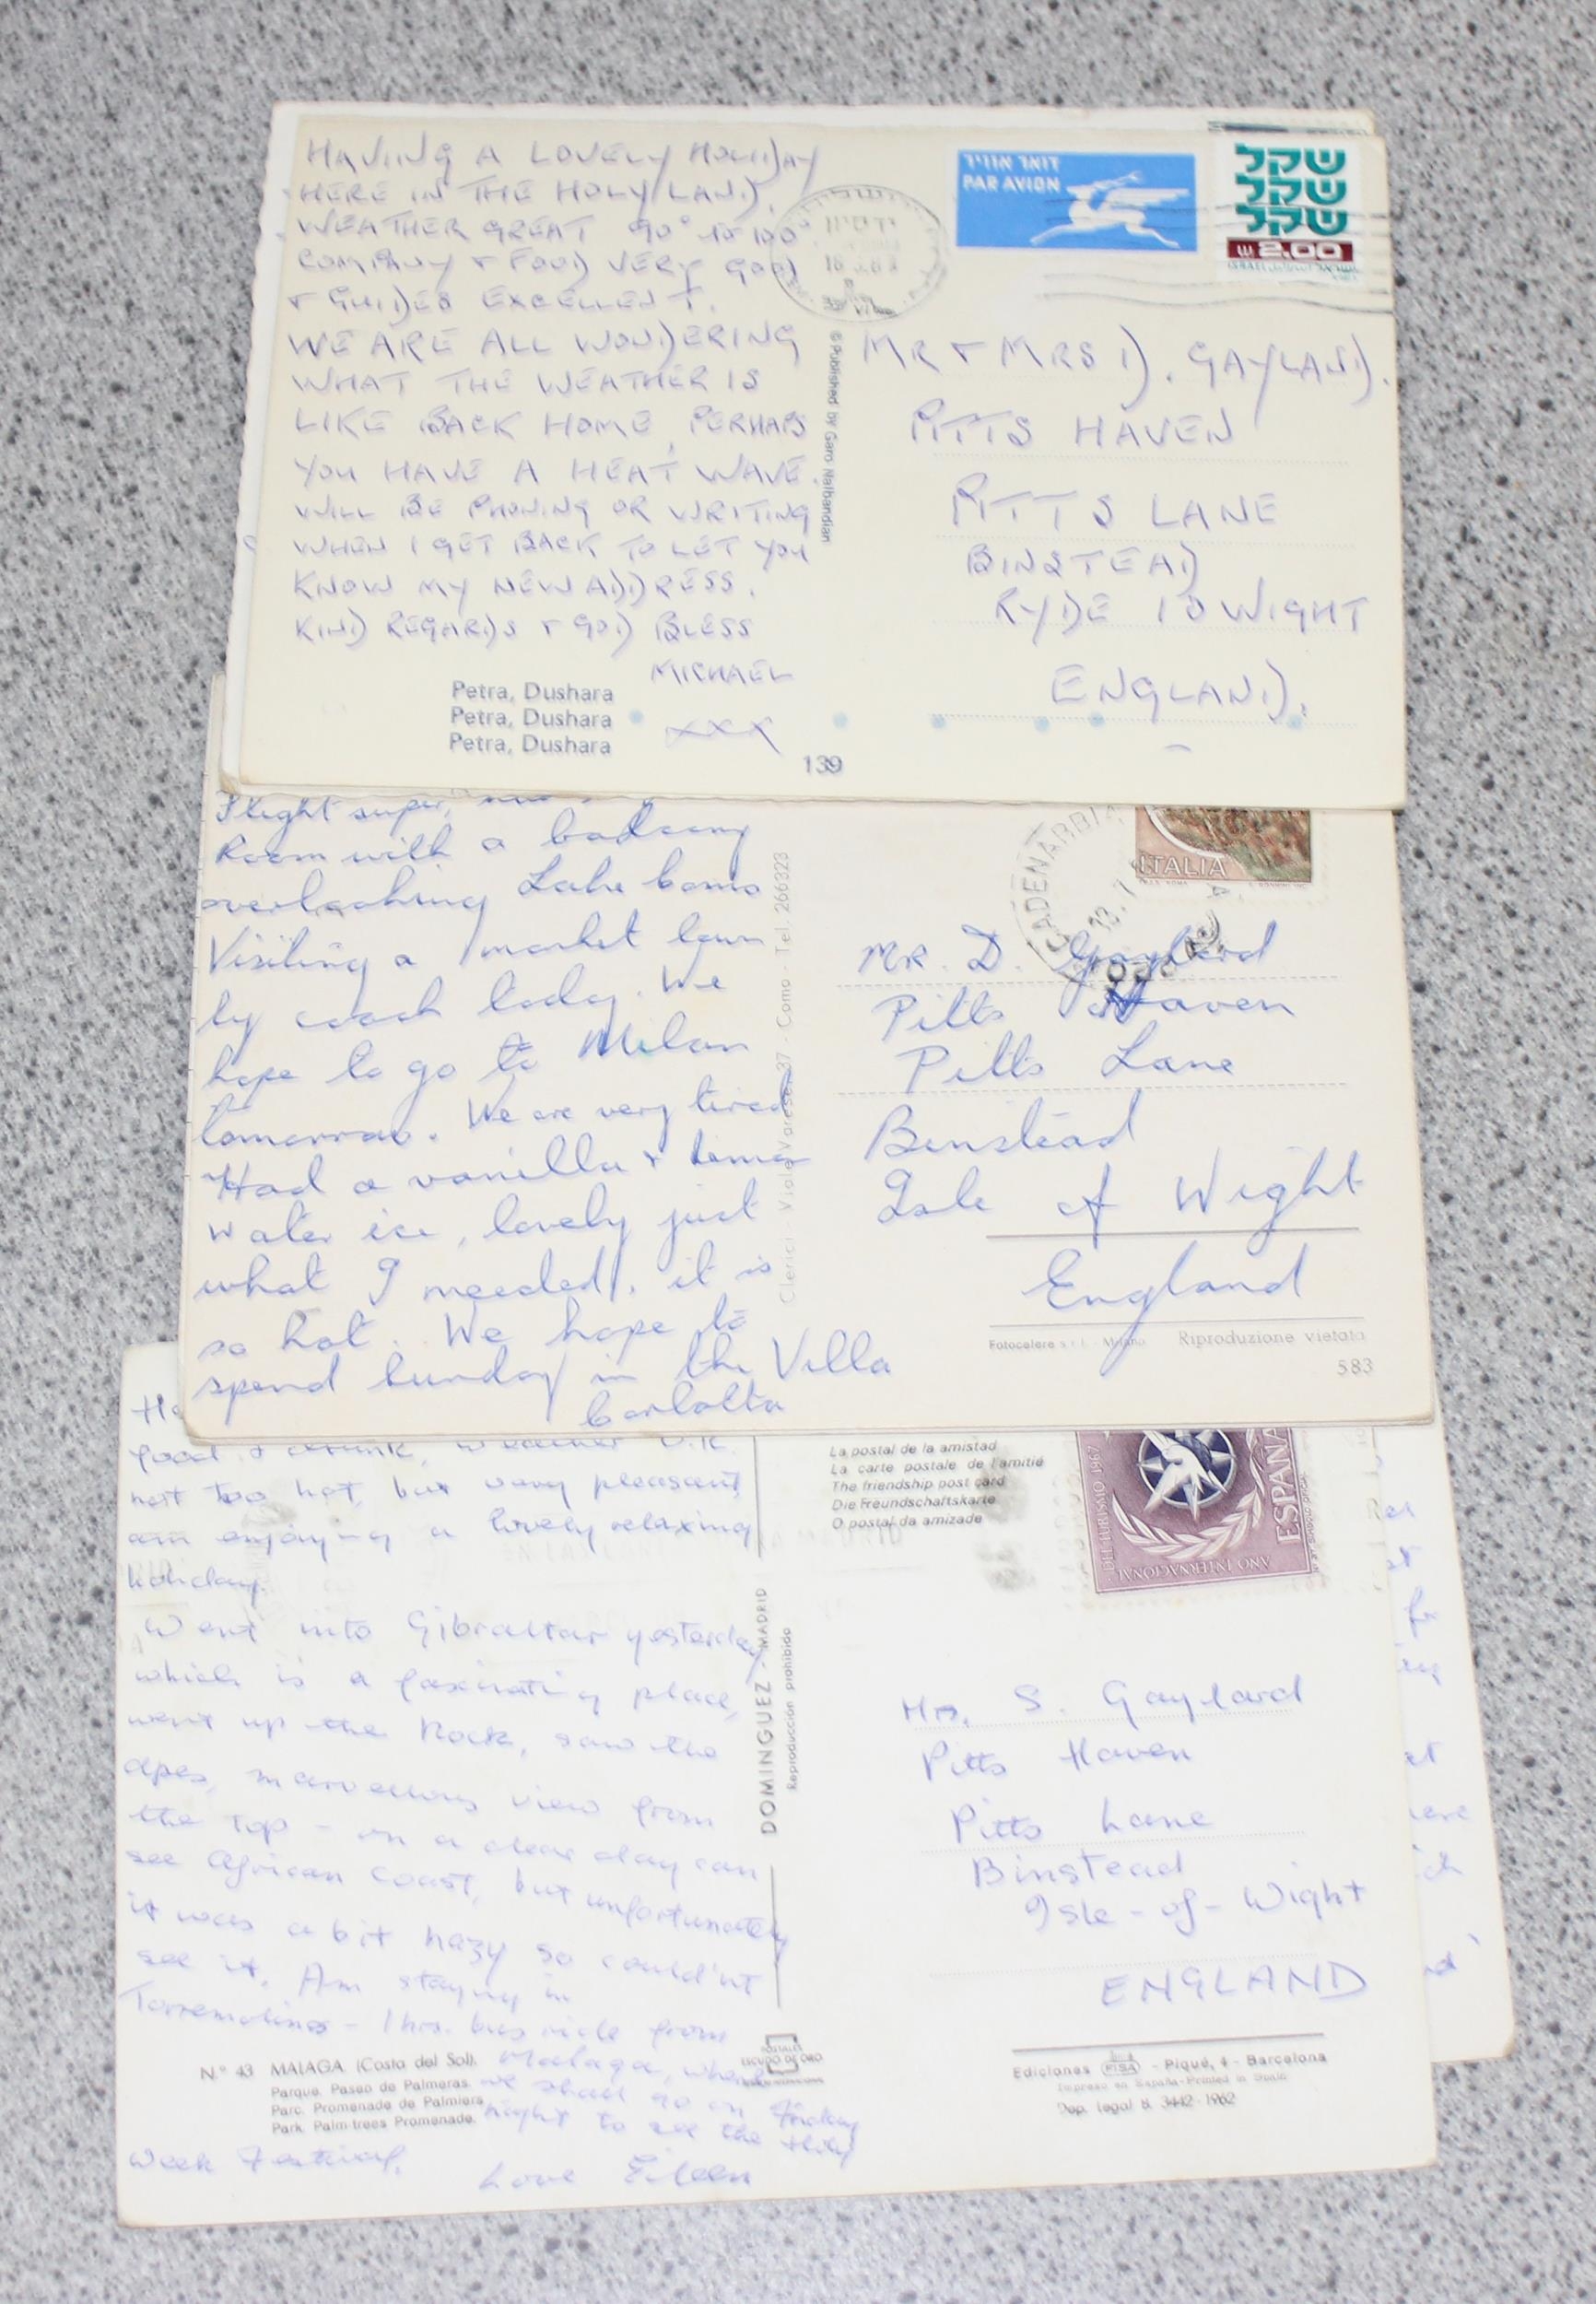 HAVING A LOVELY HOLIDAY
HERE IN THE HOLY LAND.
WEATHER GREAT 90° TO 100°
COMPANY + FOOD VERY GOOD
+ GUIDES EXCELLENT.
WE ARE ALL WONDERING
WHAT THE WEATHER IS
LIKE BACK HOME, PERHAPS
YOU HAVE A HEAT WAVE.
WILL BE PHONING OR WRITING
WHEN I GET BACK TO LET YOU
KNOW MY NEW ADDRESS.
KIND REGARDS + GOD BLESS
MICHAEL
XXX
Petra, Dushara
Petra, Dushara
Petra, Dushara
139
© Published by Garo Nalbandian
דואר אוויר
PAR AVION
שקל
שקל
שקל
2.00
ISRAEL
MR + MRS D. GAYLAND.
PITTS HAVEN
PITTS LANE
BINSTEAD
RYDE IO WIGHT
ENGLAND.
Flight super,
Room with a balcony
overlooking Lake Como
Visiting a market town
by coach today. We
hope to go to Milan
tomorrow. We are very tired
Had a vanilla + lemon
water ice, lovely just
what I needed, it is
so hot. We hope to
spend Sunday in the Villa
Carlotta
Clerici - Viale Varese, 37 - Como - Tel. 266323
CADENABBIA
ITALIA
MR. D. Gaylard
Pitts Haven
Pitts Lane
Binstead
Isle of Wight
England
Fotocelere s.r.l. Milano Riproduzione vietata
583
food & drink, weather O.K.
not too hot, but very pleasant,
am enjoying a lovely relaxing
holiday.
Went into Gibraltar yesterday
which is a fascinating place,
went up the Rock, saw the
apes, marvellous view from
the top - on a clear day can
see African Coast, but unfortunately
it was a bit hazy so could'nt
see it. Am staying in
Torremolinos - 1 hr. bus ride from
Malaga, where
we shall go on Friday
night to see the Holy
Week Festival.
Love Eileen
N.° 43 MALAGA. (Costa del Sol).
Parque. Paseo de Palmeras.
Parc. Promenade de Palmiers.
Park. Palm-trees Promenade.
DOMINGUEZ - MADRID
Reproducción prohibida
POSTALES
ESCUDO DE ORO
La postal de la amistad
La carte postale de l'amitié
The friendship post card
Die Freundschaftskarte
O postal da amizade
AÑO INTERNACIONAL DEL TURISMO 1967
ESPAÑA
Mrs. S. Gaylard
Pitts Haven
Pitts Lane
Binstead
Isle-of-Wight
ENGLAND
Ediciones FISA - Piqué, 4 - Barcelona
Impreso en España-Printed in Spain
Dep. legal B. 3442-1962